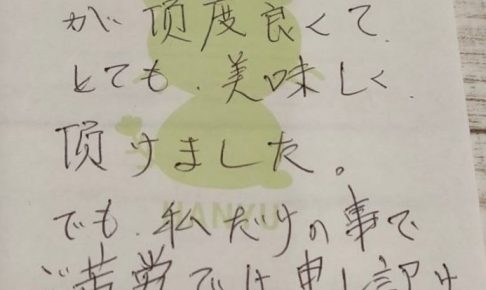 が頂度良くて
とても、美味しく
頂けました。
でも、私だけの事で
ご苦労では申し訳け
HANKYU